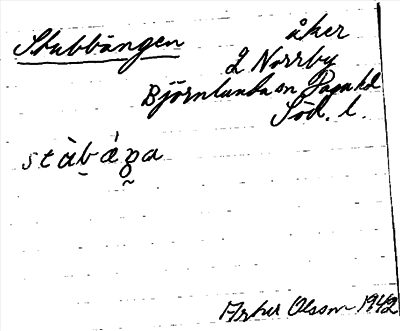 Stubbängen åker
2 Norrby
Björnlunda sn Daga hd
Söd. l.
Artur Olsson 1942